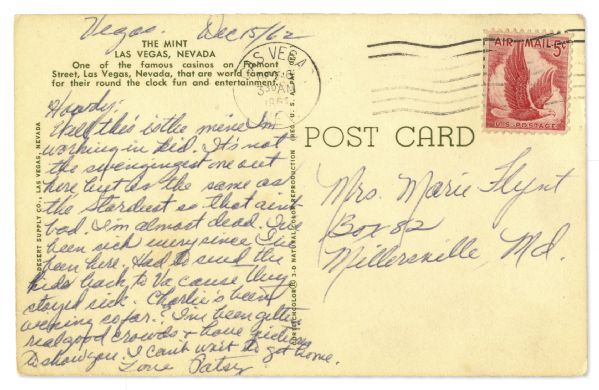 Vegas. Dec 15/62
THE MINT
LAS VEGAS, NEVADA
One of the famous casinos on Fremont
Street, Las Vegas, Nevada, that are world famous
for their round the clock fun and entertainment.
Howdy;
Well this is the mine I'm
working in kid. It's not
the swengingest one out
here but its the same as
the Stardust so that aint
bad. I'm almost dead. I've
been sick every since I've
been here. Had to send the
kids back to Va cause they
stayed sick. Charlie's been
working so far. I've been gettin
real good crowds & have
to show you. I can't wait to get home.
Love Patsy
DESERT SUPPLY CO., LAS VEGAS, NEVADA
3-D NATURAL COLOR REPRODUCTION (REG. U. S. A. PAT. OFF.)
LAS VEGAS
330 AM
AIR MAIL 5¢
U.S. POSTAGE
POST CARD
Mrs. Marie Flynt
Box 82
Millersville, Md.